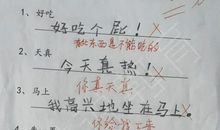 1、好吃
好吃个屁！
此东西是不能吃的
2、天真
今天真热！
你真天真
3、马上
我高兴地坐在马上。